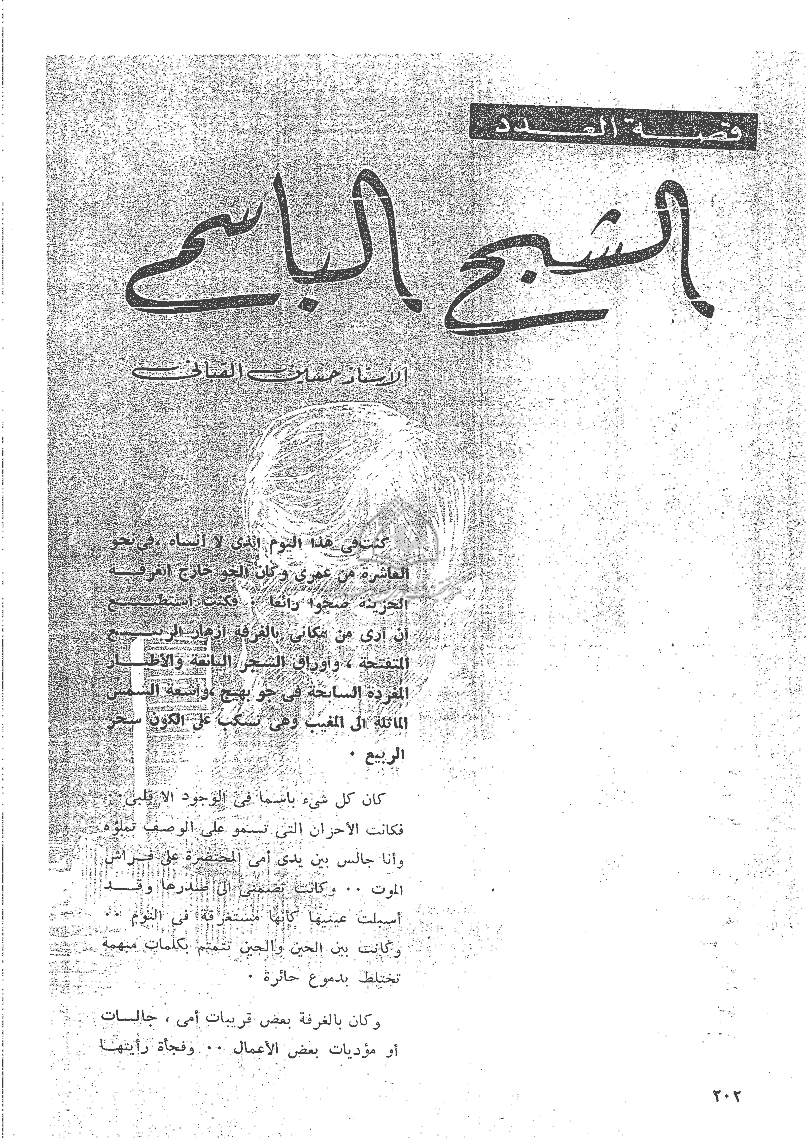 قصة العدد
الشبح الباسم
للأستاذ حسين القباني
كنت فى هذا اليوم الذى لا أنساه ، فى نحو
العاشرة من عمرى وكان الجو خارج الغرفة
الحزينة صحوا رائعا ، فكنت أستطيع
أن أرى من مكانى بالغرفة أزهار الربيع
المتفتحة ، وأوراق الشجر اليانعة والأطيار
المغردة السابحة فى جو بهيج ، وأشعة الشمس
المائلة الى المغيب وهى تسكب على الكون سحر
الربيع ٠
كان كل شىء باسما فى الوجود الا قلبى ٠٠
فكانت الأحزان التى تسمو على الوصف تملؤه
وأنا جالس بين يدى أمى المحتضرة على فراش
الموت ٠٠ وكانت تضمنى الى صدرها وقد
أسبلت عينيها كأنها مستغرقة فى النوم ٠٠
وكانت بين الحين والحين تتمتم بكلمات مبهمة
تختلط بدموع حائرة ٠
وكان بالغرفة بعض قريبات أمى ، جالسات
أو مؤديات بعض الأعمال ٠٠ وفجأة رأيتها
٢٠٢